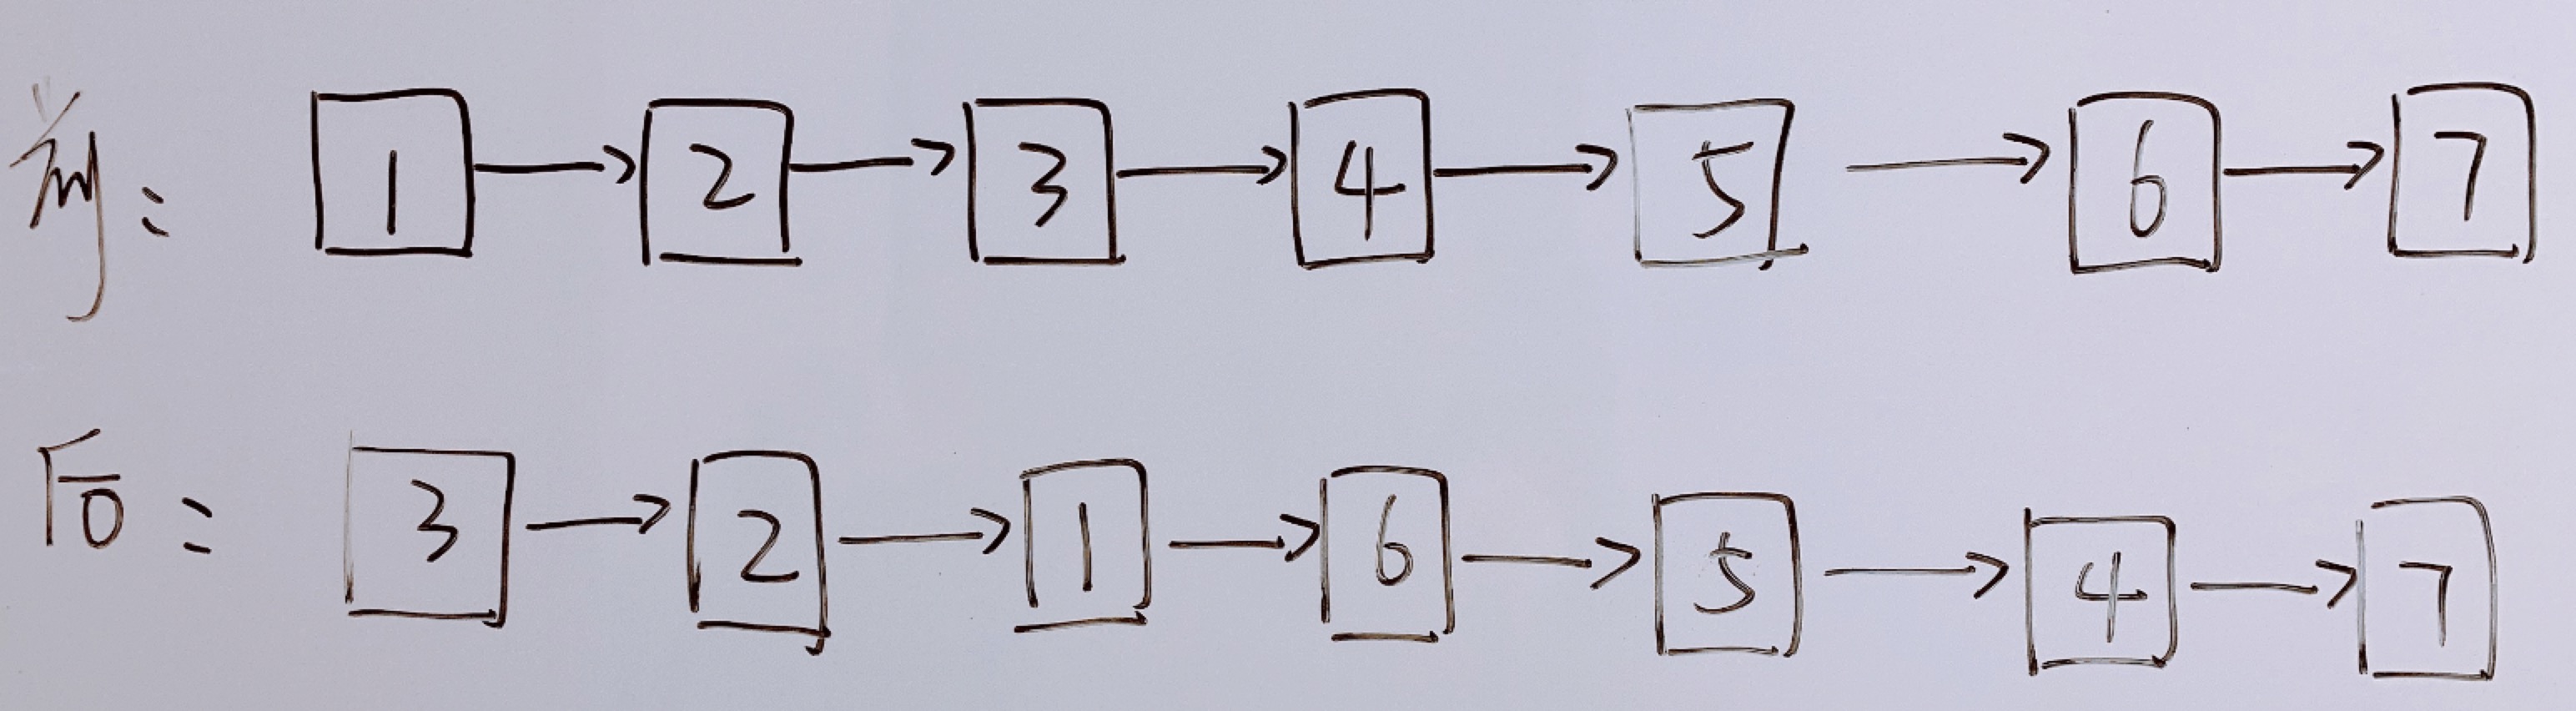 前: 1 → 2 → 3 → 4 → 5 → 6 → 7
后: 3 → 2 → 1 → 6 → 5 → 4 → 7